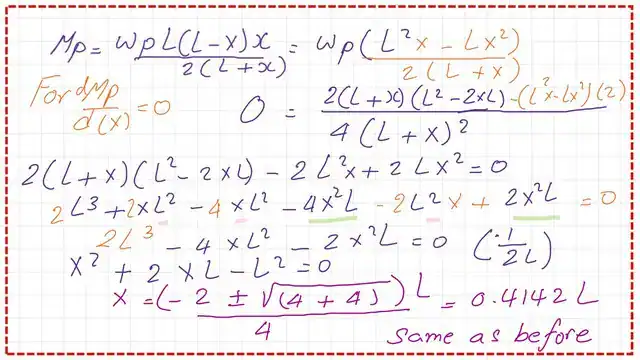 Mp = wp L(L-x)x / 2(L+x) = wp(L²x - Lx²) / 2(L+x)
For dMp/d(x) = 0 0 = 2(L+x)(L²-2xL) - (L²x-Lx²)(2) / 4(L+x)²
2(L+x)(L²-2xL) - 2L²x + 2Lx² = 0
2L³ + 2xL² - 4xL² - 4x²L - 2L²x + 2x²L = 0
2L³ - 4xL² - 2x²L = 0 (·1/2L)
x² + 2xL - L² = 0
x = (-2 ± √(4+4))L / 4 = 0.4142L
same as before